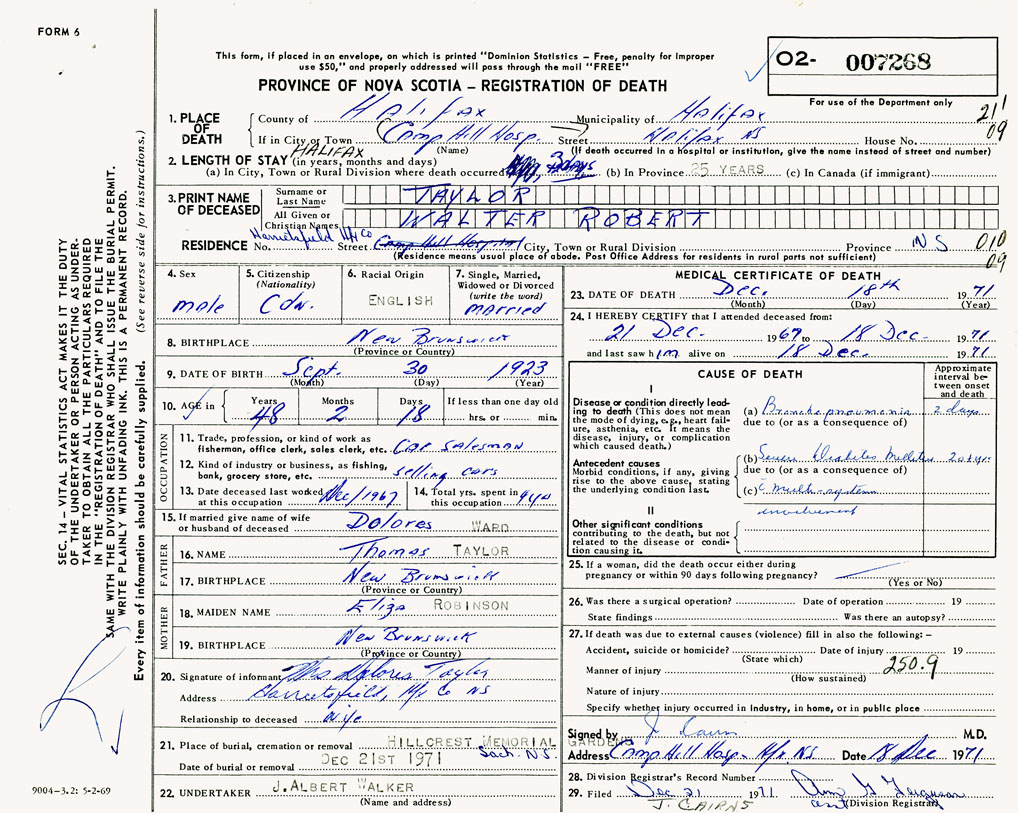 FORM 6
This form, if placed in an envelope, on which is printed "Dominion Statistics – Free, penalty for improper
use $50," and properly addressed will pass through the mail "FREE"
O2- 007268
PROVINCE OF NOVA SCOTIA – REGISTRATION OF DEATH
For use of the Department only
1. PLACE OF DEATH
County of Halifax Municipality of Halifax 21
If in City or Town Camp Hill Hosp. Street Halifax NS House No. 09
HALIFAX (Name) (If death occurred in a hospital or institution, give the name instead of street and number)
2. LENGTH OF STAY (in years, months and days)
(a) In City, Town or Rural Division where death occurred 3 DAYS (b) In Province 25 YEARS (c) In Canada (if immigrant)
3. PRINT NAME OF DECEASED
Surname or Last Name TAYLOR
All Given or Christian Names WALTER ROBERT
RESIDENCE No. Harrietsfield Hfx Co Street Camp Hill Hospital City, Town or Rural Division Province NS 010
(Residence means usual place of abode. Post Office Address for residents in rural parts not sufficient) 09
4. Sex male
5. Citizenship (Nationality) Cdn.
6. Racial Origin ENGLISH
7. Single, Married, Widowed or Divorced (write the word) married
8. BIRTHPLACE New Brunswick
(Province or Country)
9. DATE OF BIRTH Sept. 30 1923
(Month) (Day) (Year)
10. AGE in Years 48 Months 2 Days 18 If less than one day old
hrs. or min.
OCCUPATION
11. Trade, profession, or kind of work as
fisherman, office clerk, sales clerk, etc. Car Salesman
12. Kind of industry or business, as fishing,
bank, grocery store, etc. selling cars
13. Date deceased last worked
at this occupation Dec/1967
14. Total yrs. spent in
this occupation
15. If married give name of wife
or husband of deceased Dolores WARD
FATHER
16. NAME Thomas TAYLOR
17. BIRTHPLACE New Brunswick
(Province or Country)
MOTHER
18. MAIDEN NAME Eliza ROBINSON
19. BIRTHPLACE New Brunswick
(Province or Country)
20. Signature of informant Mrs Dolores Taylor
Address Harrietsfield, Hfx Co NS
Relationship to deceased Wife
21. Place of burial, cremation or removal HILLCREST MEMORIAL
GARDENS Sack. N.S.
Date of burial or removal DEC 21ST 1971
22. UNDERTAKER J. ALBERT WALKER
(Name and address)
MEDICAL CERTIFICATE OF DEATH
23. DATE OF DEATH Dec. 18th 1971
(Month) (Day) (Year)
24. I HEREBY CERTIFY that I attended deceased from:
21 Dec. 1967 to 18 Dec. 1971
and last saw him alive on 18 Dec. 1971
CAUSE OF DEATH
Approximate interval between onset and death
I
Disease or condition directly leading to death (This does not mean the mode of dying, e.g., heart failure, asthenia, etc. It means the disease, injury, or complication which caused death.)
(a) Bronchopneumonia 2 days
due to (or as a consequence of)
Antecedent causes
Morbid conditions, if any, giving rise to the above cause, stating the underlying condition last.
(b) Severe Diabetes Mellitus 20 yr
due to (or as a consequence of)
(c) c multi-system
involvement
II
Other significant conditions
contributing to the death, but not related to the disease or condition causing it.
25. If a woman, did the death occur either during
pregnancy or within 90 days following pregnancy?
(Yes or No)
26. Was there a surgical operation? Date of operation 19
State findings Was there an autopsy?
27. If death was due to external causes (violence) fill in also the following:–
Accident, suicide or homicide? Date of injury 19
(State which)
Manner of injury 250.9
(How sustained)
Nature of injury
Specify whether injury occurred in industry, in home, or in public place
Signed by M.D.
Address Camp Hill Hosp. Hfx NS Date 18 Dec 1971
28. Division Registrar's Record Number
29. Filed Dec 21 1971
J. CAIRNS (Division Registrar)
SEC. 14 – VITAL STATISTICS ACT MAKES IT THE DUTY
OF THE UNDERTAKER OR PERSON ACTING AS UNDERTAKER
TO OBTAIN ALL THE PARTICULARS REQUIRED
IN THE "REGISTRATION OF DEATH" AND TO FILE THE
SAME WITH THE DIVISION REGISTRAR WHO SHALL ISSUE THE BURIAL PERMIT.
WRITE PLAINLY WITH UNFADING INK. THIS IS A PERMANENT RECORD.
Every item of information should be carefully supplied. (See reverse side for instructions.)
9004-3.2: 5-2-69